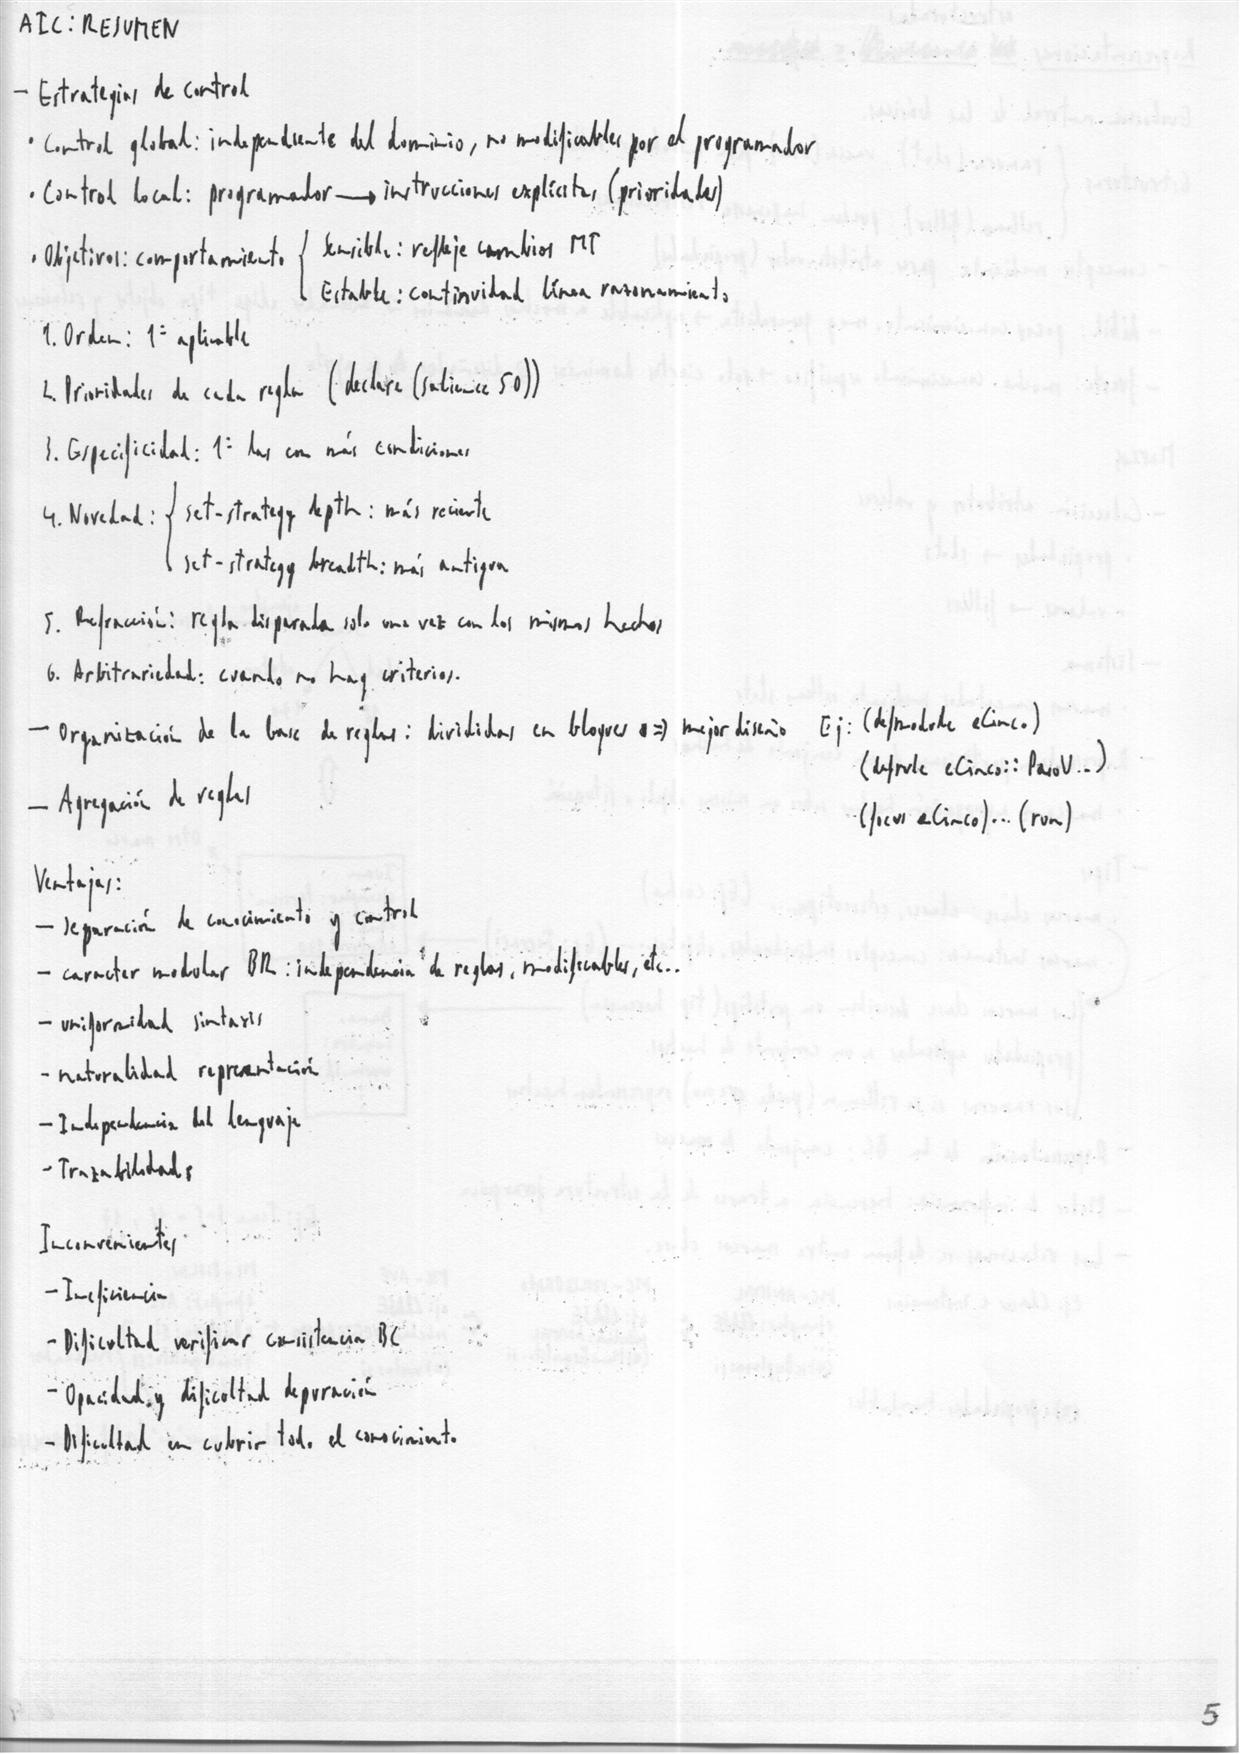 AIC: RESUMEN
- Estrategias de control
· Control global: independiente del dominio, no modificables por el programador
· Control local: programador → instrucciones explícitas (prioridades)
· Objetivos: comportamiento { Sensible: refleje cambios MT
Estable: continuidad línea razonamiento
1. Orden: 1º aplicable
2. Prioridades de cada regla (declare (salience 50))
3. Especificidad: 1º las con más condiciones
4. Novedad: { set-strategy depth: más reciente
set-strategy breadth: más antigua
5. Refracción: regla disparada solo una vez con los mismos hechos
6. Arbitrariedad: cuando no hay criterios.
- Organización de la base de reglas: divididas en bloques => mejor diseño Ej: (defmodule eCinco)
(defrule eCinco:: PasoV...)
(focus eCinco)... (run)
- Agregación de reglas
Ventajas:
- separación de conocimiento y control
- caracter modular BR: independencia de reglas, modificables, etc..
- uniformidad sintaxis
- naturalidad representación
- Independencia del lenguaje
- Trazabilidad
Inconvenientes
- Ineficiencia
- Dificultad verificar consistencia BC
- Opacidad y dificultad depuración
- Dificultad en cubrir todo el conocimiento
5